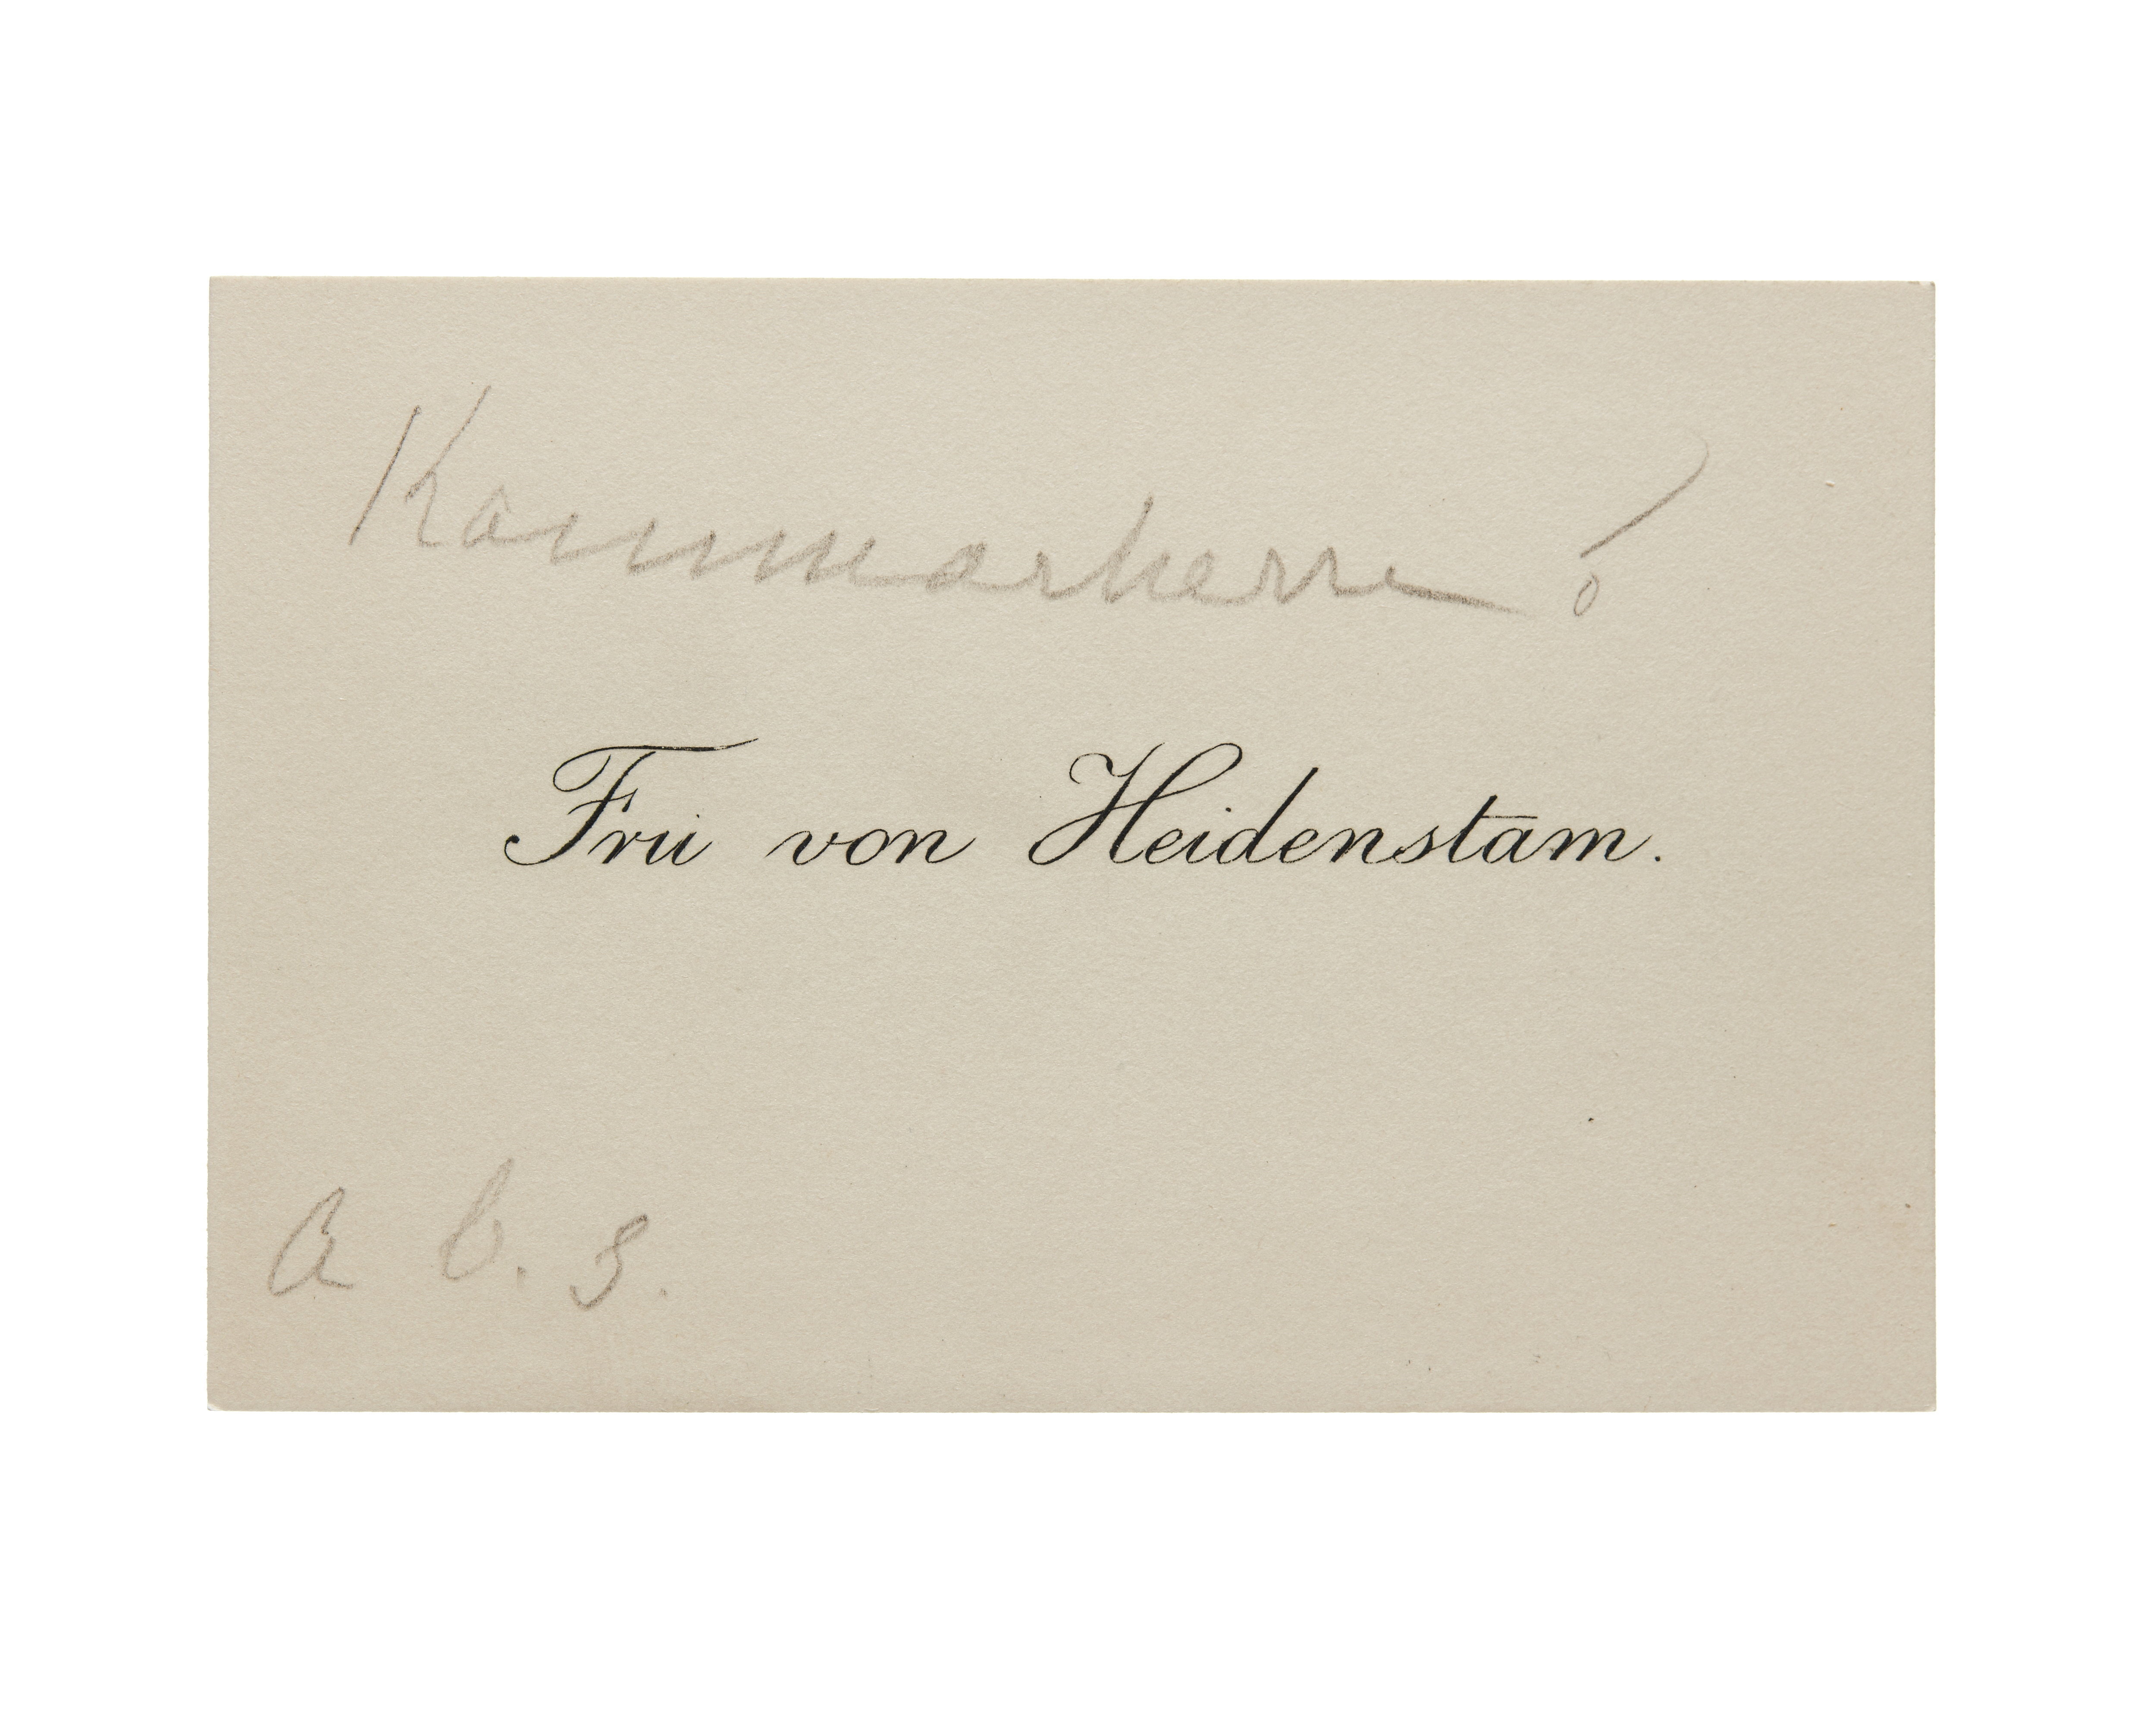 Kammarherre &
Fru von Heidenstam.
a b. s.